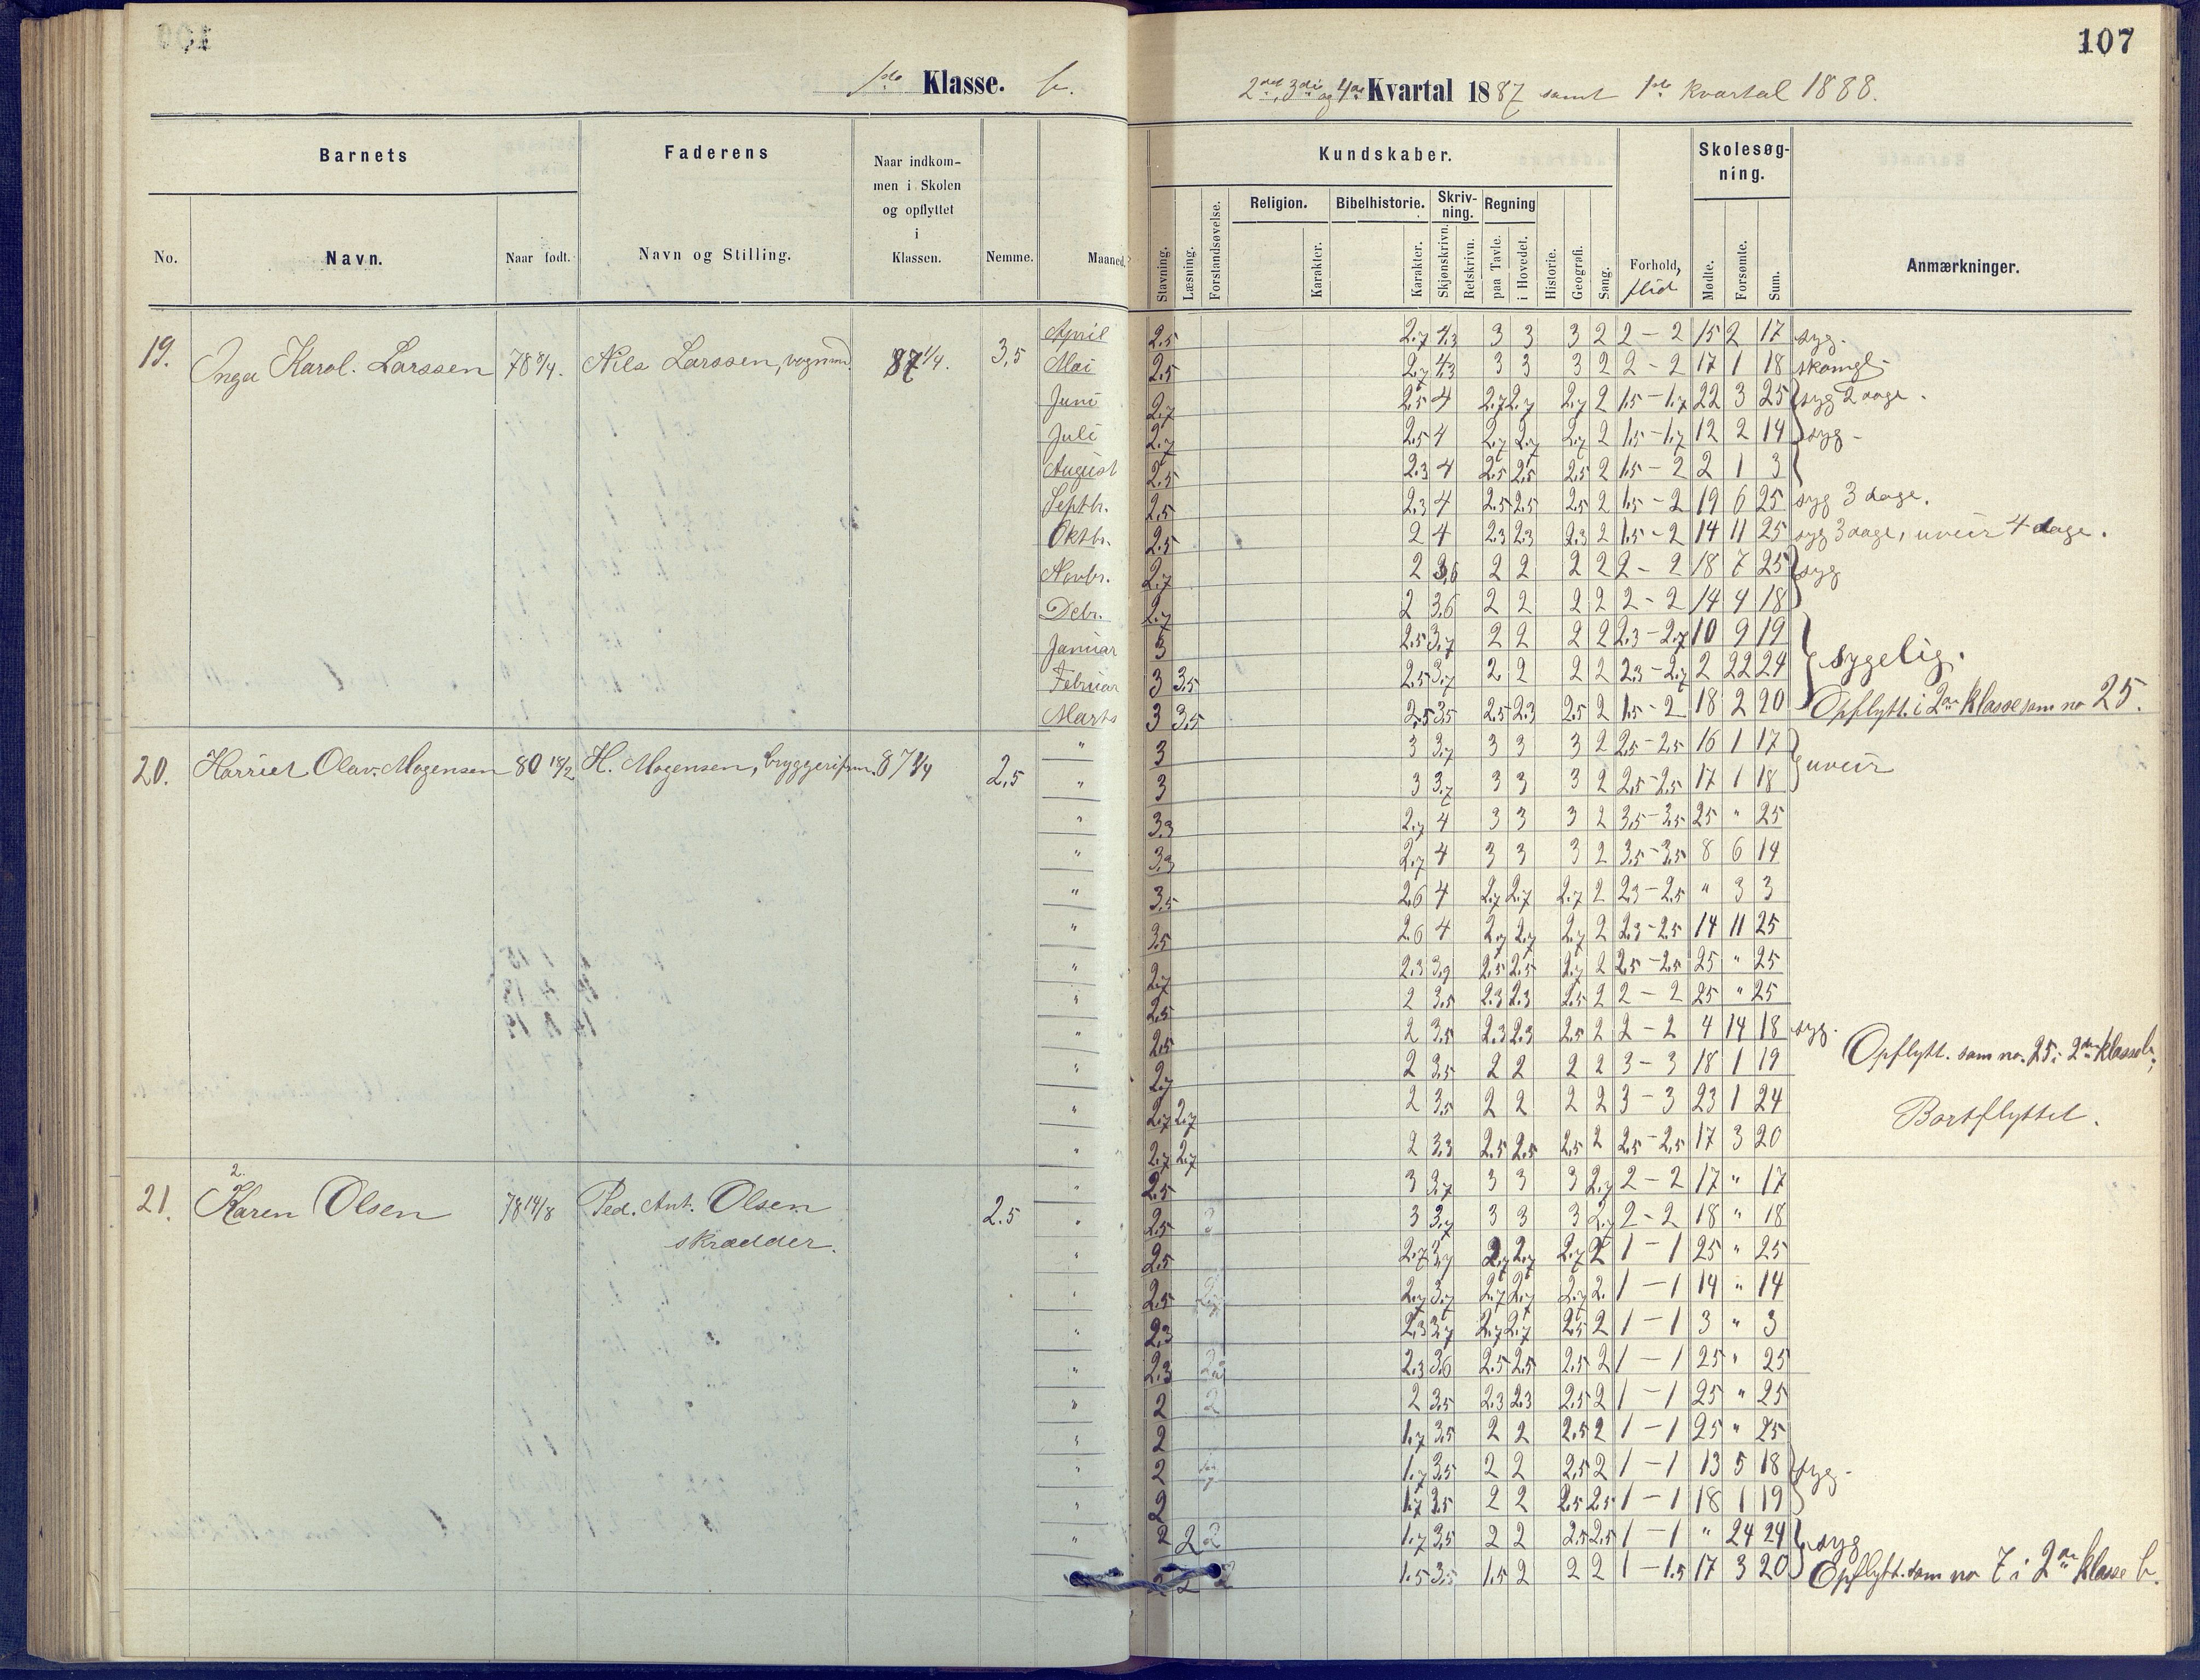 107
1ste Klasse. b.
2det, 3die og 4de Kvartal 1887 samt 1ste kvartal 1888.
Barnets
Faderens
Naar indkom-
men i Skolen
og opflyttet
i
Klassen.
Nemme.
Maaned.
Kundskaber.
Skolesøg-
ning.
No.
Navn.
Naar født.
Navn og Stilling.
Stavning.
Læsning.
Forstandsøvelse.
Religion.
Karakter.
Bibelhistorie.
Karakter.
Skriv-
ning.
Skjønskrivn.
Retskrivn.
Regning
paa Tavle.
i Hovedet.
Historie.
Geografi.
Sang.
Forhold,
flid
Mødte.
Forsømte.
Sum.
Anmærkninger.
19. Inga Karol. Larssen 78 8/4. Nils Larssen, vognmd. 87 1/4. 3,5
April 2.5 2.7 4.3 3 3 3 2 2 - 2 15 2 17 syg.
Mai 2.5 2.7 4.3 3 3 3 2 2 - 2 17 1 18
Juni 2.7 2.5 4 2.7 2.7 2.7 2 1.5 - 1.7 22 3 25 syg 2 dage.
Juli 2.7 2.5 4 2.7 2.7 2.7 2 1.5 - 1.7 12 2 14 syg -
August 2.5 2.3 4 2.5 2.5 2.5 2 1.5 - 2 2 1 3
Septbr. 2.5 2.3 4 2.5 2.5 2.5 2 1.5 - 2 19 6 25 syg 3 dage.
Oktbr. 2.5 2 4 2.3 2.3 2.3 2 1.5 - 2 14 11 25 syg 3 dage, uveir 4 dage.
Novbr. 2.7 2 3.6 2 2 2 2 2 - 2 18 7 25 syg
Debr. 2.7 2 3.6 2 2 2 2 2 - 2 14 4 18
Januar 3 2.5 3.7 2 2 2 2 2.3 - 2.7 10 9 19
Februar 3 3.5 2.5 3.7 2 2 2 2 2.3 - 2.7 2 22 24 sygelig.
Marts 3 3.5 2.5 3.5 2.5 2.3 2.5 2 1.5 - 2 18 2 20 Opflytt. i 2den klasse som no 25.
20. Harriet Olav. Mogensen 80 18/2 H. Mogensen, bryggerifm. 87 1/4 2,5
" 3 3 3.7 3 3 3 2 2.5 - 2.5 16 1 17
" 3 3 3.7 3 3 3 2 2.5 - 2.5 17 1 18 uveir
" 3.3 2.7 4 3 3 3 2 3.5 - 3.5 25 " 25
" 3.3 2.7 4 3 3 3 2 3.5 - 3.5 8 6 14
" 3.5 2.6 4 2.7 2.7 2.7 2 2.3 - 2.5 " 3 3
" 3.5 2.6 4 2.7 2.7 2.7 2 2.3 - 2.5 14 11 25
" 2.7 2.3 3.9 2.5 2.5 2.7 2 2.5 - 2.5 25 " 25
" 2.5 2 3.5 2.3 2.3 2.5 2 2 - 2 25 " 25
" 2.5 2 3.5 2.3 2.3 2.5 2 2 - 2 4 14 18 syg.
" 2.7 2 3.5 2 2 2 2 3 - 3 18 1 19 Opflytt. som no. 25 i 2den klasse b.
" 2.7 2.7 2 3.5 2 2 2 2 3 - 3 23 1 24 Bortflyttet.
" 2.7 2.7 2 3.3 2.5 2.5 2.5 2 2.5 - 2.5 17 3 20
2.
21. Karen Olsen 78 14/8 Ped. Ant. Olsen 2.5
skrædder.
" 2.5 3 3.7 3 3 3 2.7 2 - 2 17 " 17
" 2.5 3 3 3.7 3 3 3 2.7 2 - 2 18 " 18
" 2.5 2.7 3.7 2.7 2.7 2.7 2 1 - 1 25 " 25
" 2.5 2.7 2.7 3.7 2.7 2.7 2.7 2. 1 - 1 14 " 14
" 2.3 2.3 3.7 2.7 2.7 2.5 2 1 - 1 3 " 3
" 2.3 2.3 3.6 2.5 2.5 2.5 2 1 - 1 25 " 25
" 2 2 2 3.5 2.3 2.3 2.5 2 1 - 1 25 " 25
" 2 1.7 3.5 2 2 2.5 2 1 - 1 25 " 25
" 2 1.7 3.5 2 2 2.5 2 1 - 1 13 5 18 syg -
" 2 1.7 3.5 2 2 2.5 2.5 1 - 1 18 1 19
" 2 2 2 1.7 3.5 2 2 2.5 2.5 1 - 1 " 24 24 syg
2 2 2 1.5 3.5 1.5 2 2 2 1 - 1.5 17 3 20 Opflytt. som no 7 i 2den klasse b.